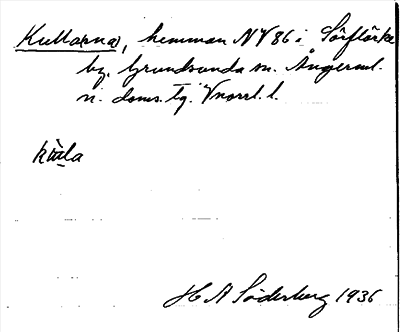 Kullarna, hemman No 86 i Sörflärke
by, Grundsunda sn. Ångerml.
n. doms. tg. Vnorrl. l.
H A Söderberg 1936